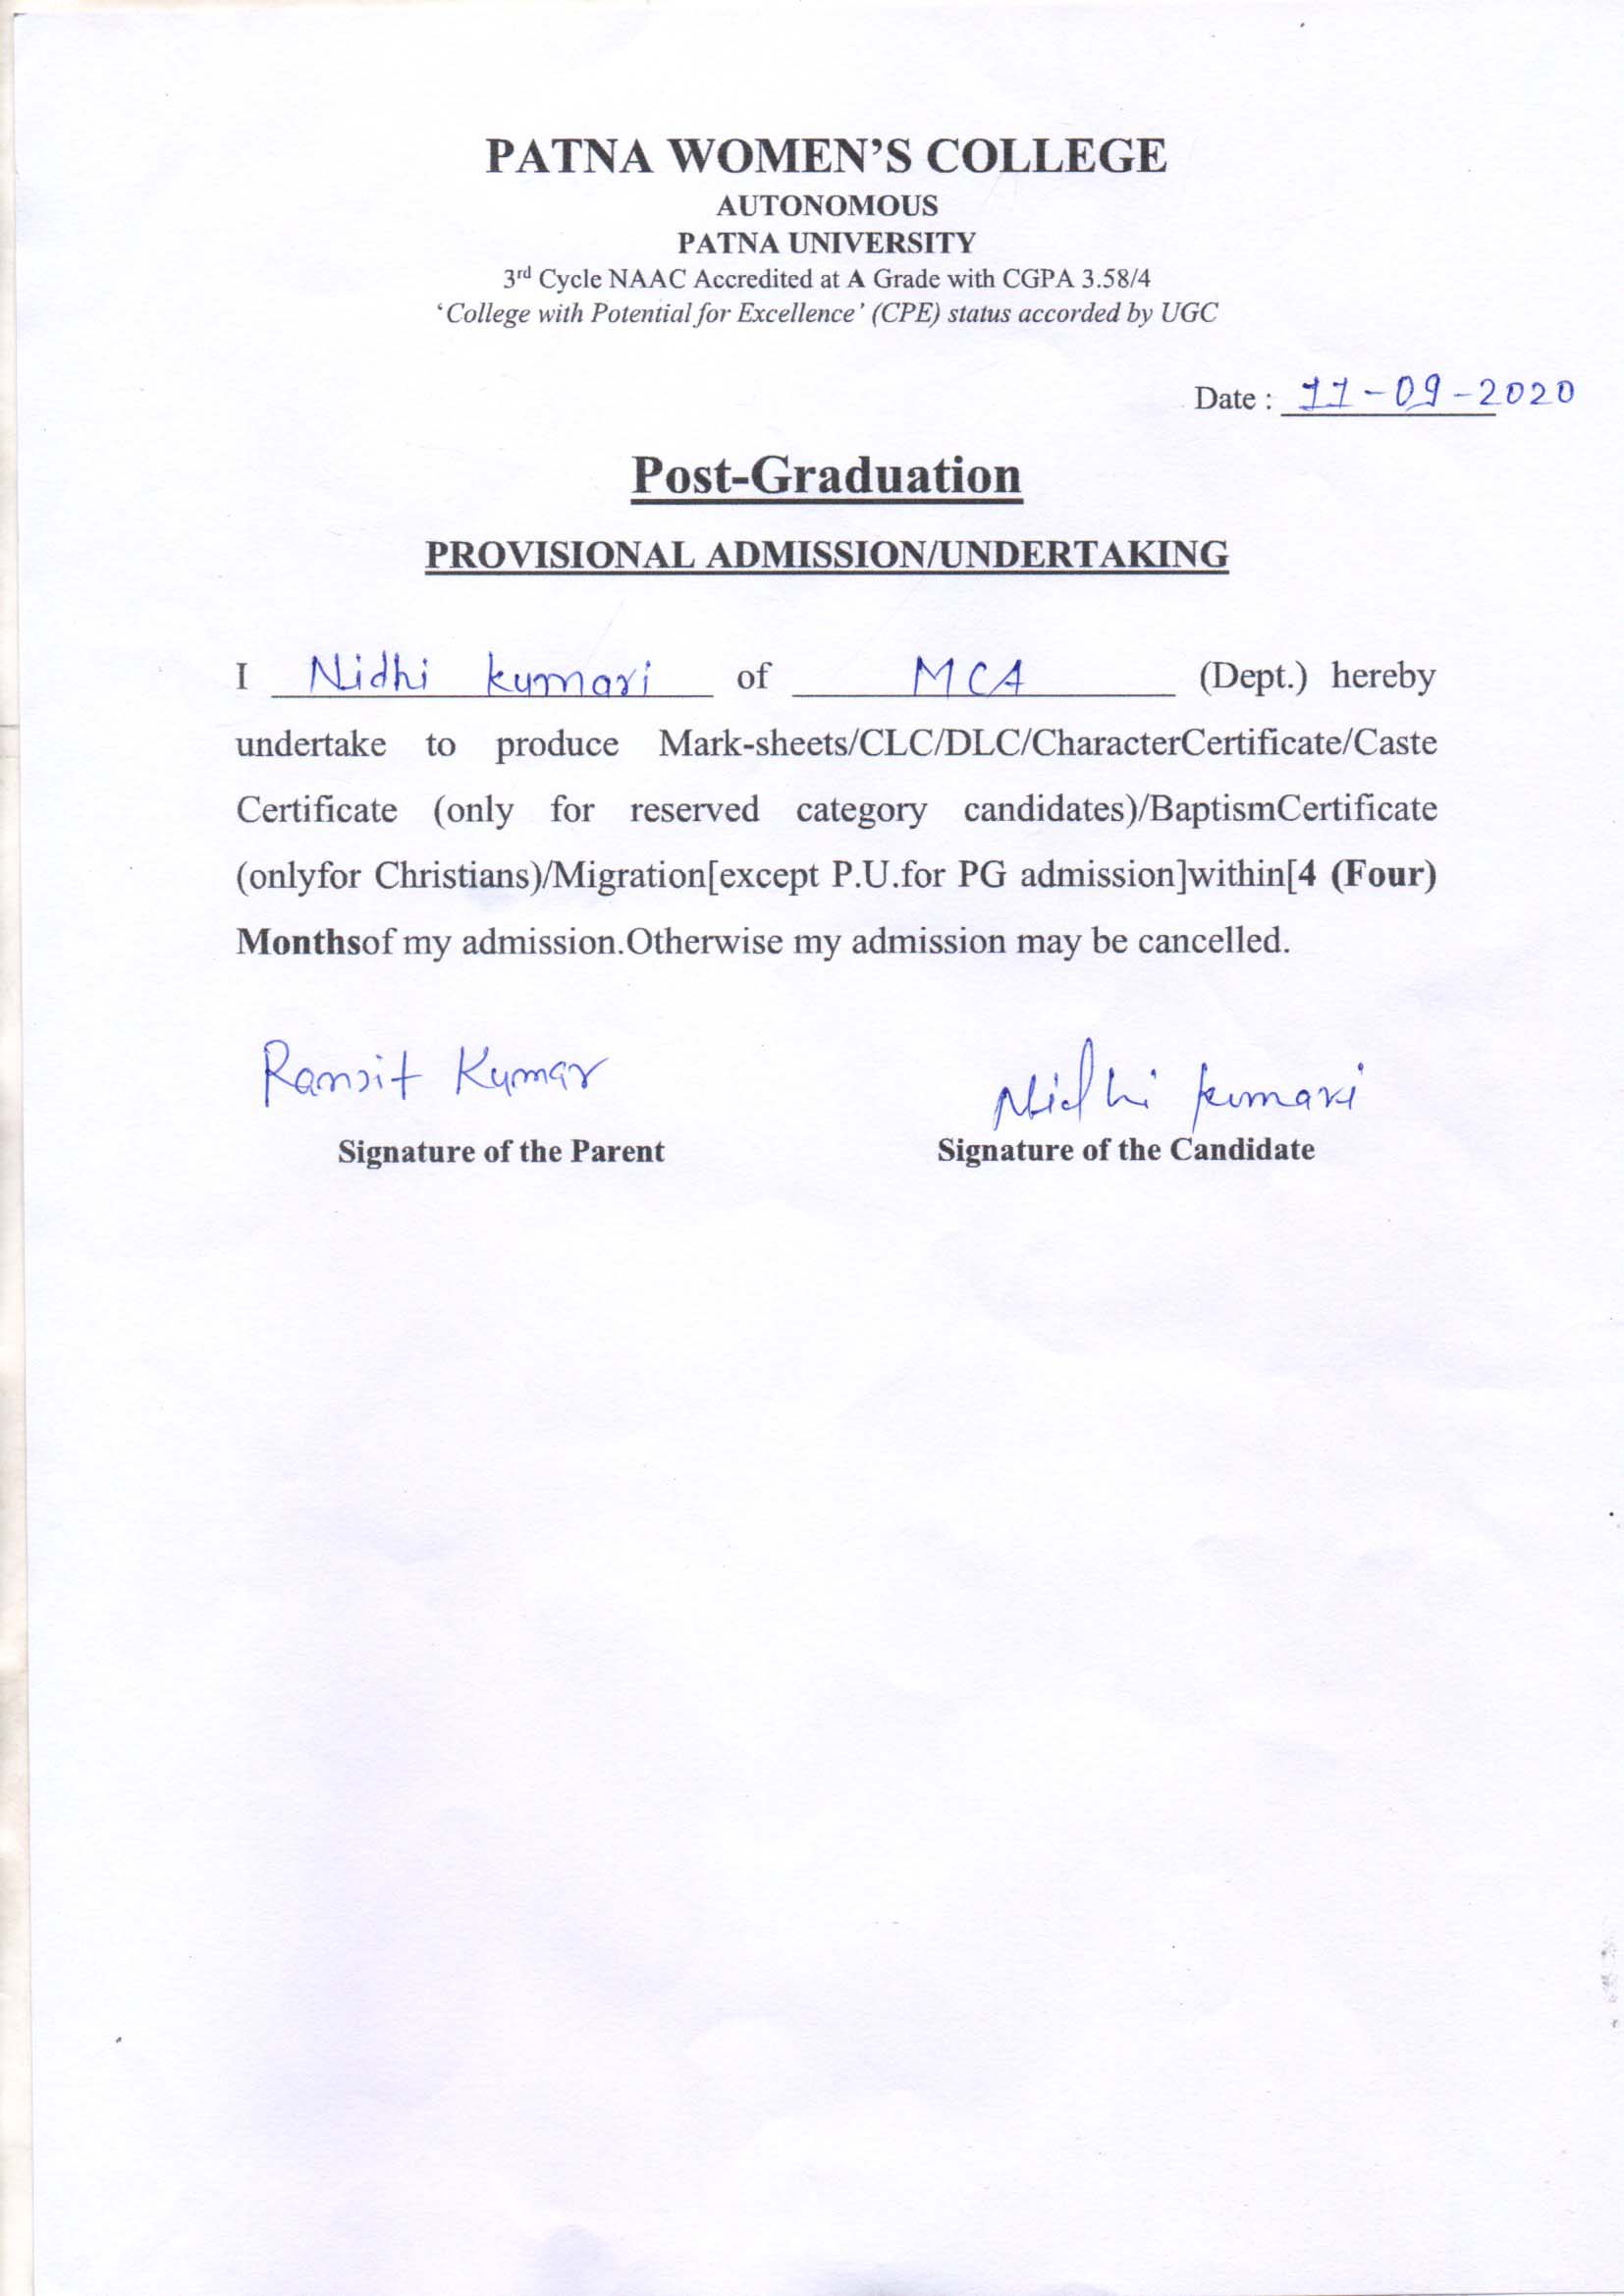 PATNA WOMEN'S COLLEGE
AUTONOMOUS
PATNA UNIVERSITY
3rd Cycle NAAC Accredited at A Grade with CGPA 3.58/4
‘College with Potential for Excellence’ (CPE) status accorded by UGC
Date : 11-09-2020
Post-Graduation
PROVISIONAL ADMISSION/UNDERTAKING
I Nidhi kumari of MCA (Dept.) hereby
undertake to produce Mark-sheets/CLC/DLC/CharacterCertificate/Caste
Certificate (only for reserved category candidates)/BaptismCertificate
(onlyfor Christians)/Migration[except P.U.for PG admission]within[4 (Four)
Monthsof my admission.Otherwise my admission may be cancelled.
Ranjit Kumar Nidhi kumari
Signature of the Parent Signature of the Candidate